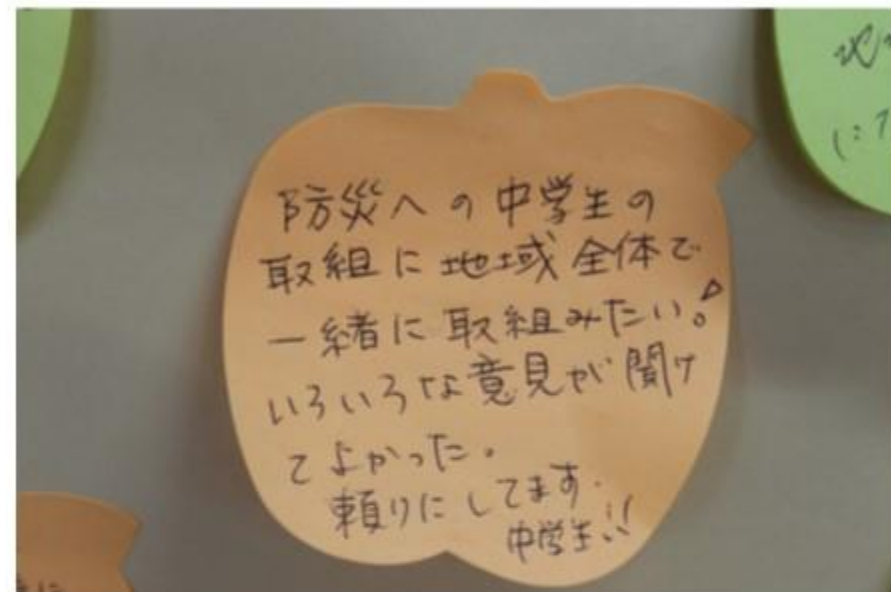 防災への中学生の
取組に地域全体で
一緒に取組みたい!
いろいろな意見が聞け
てよかった。
頼りにしてます.
中学生!!
地